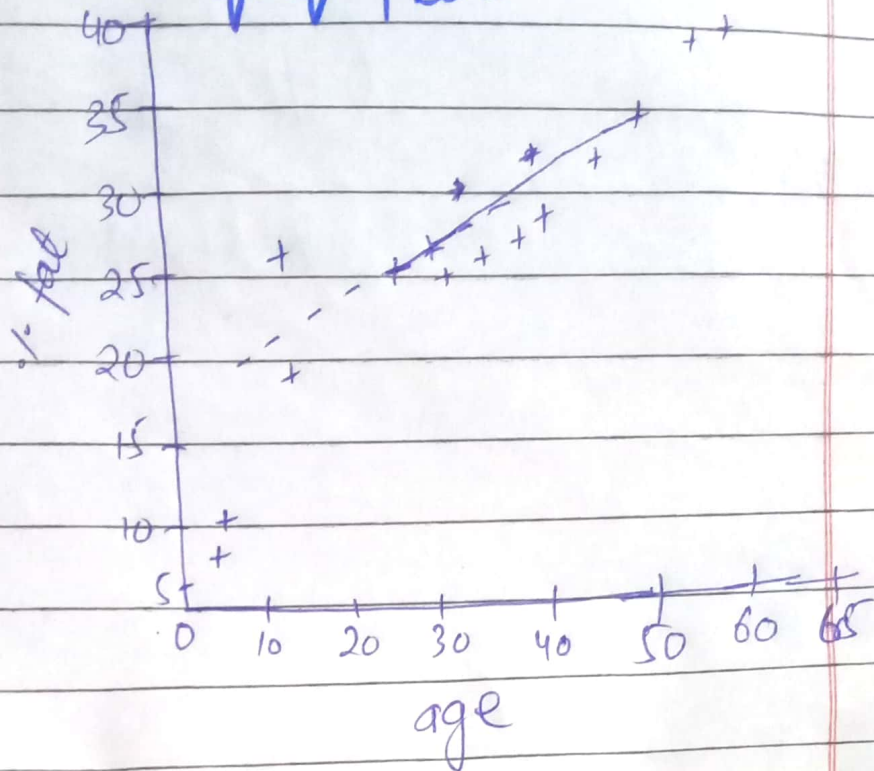 40
35
30
25
20
15
10
5
% fat
0 10 20 30 40 50 60 65
age